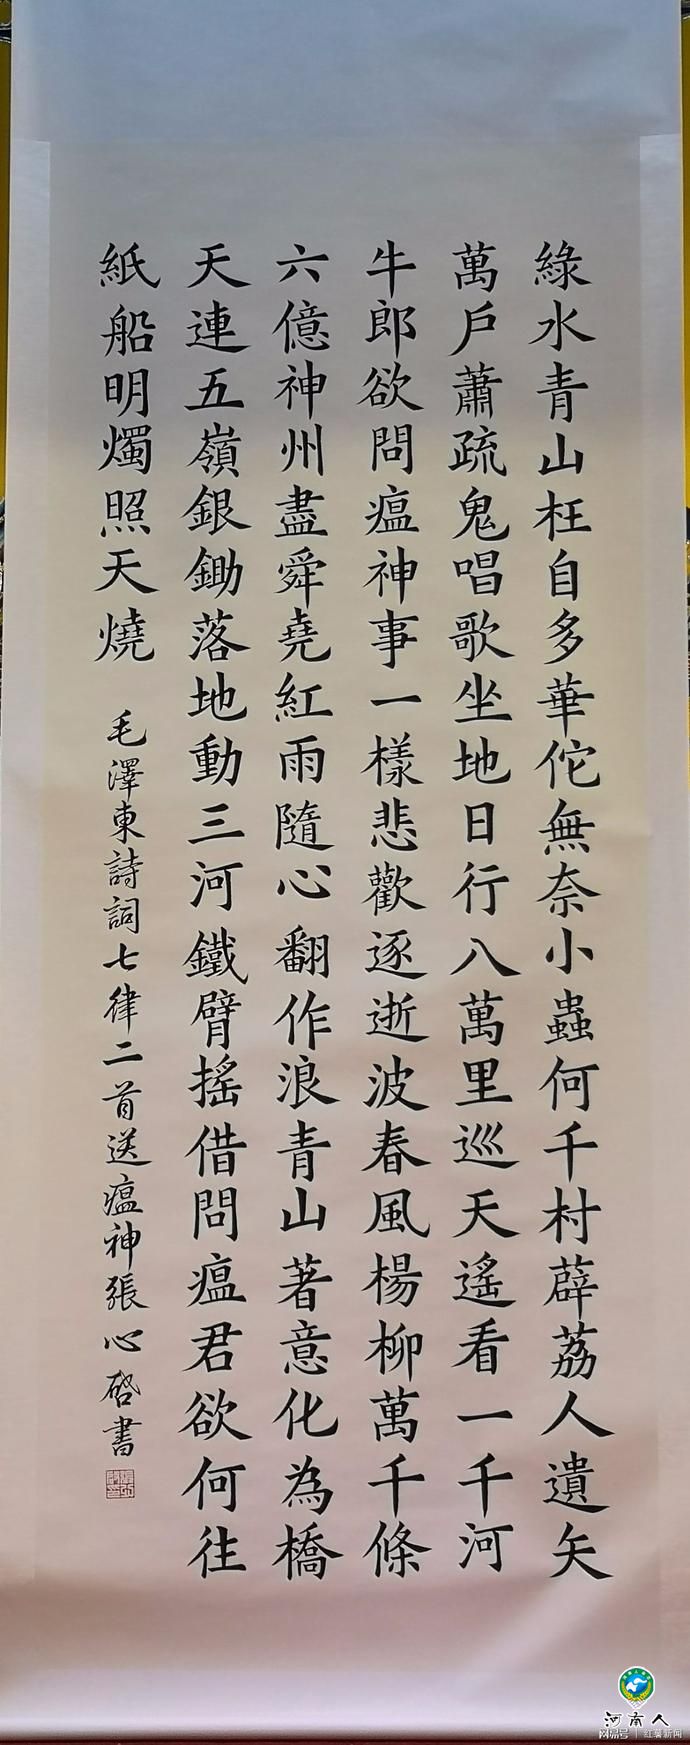 綠水青山枉自多華佗無奈小蟲何千村薜荔人遺矢
萬戶蕭疏鬼唱歌坐地日行八萬里巡天遙看一千河
牛郎欲問瘟神事一樣悲歡逐逝波春風楊柳萬千條
六億神州盡舜堯紅雨隨心翻作浪青山著意化為橋
天連五嶺銀鋤落地動三河鐵臂搖借問瘟君欲何往
紙船明燭照天燒
毛澤東詩詞七律二首送瘟神張心啓書
河南人
网易号 | 红薯新闻